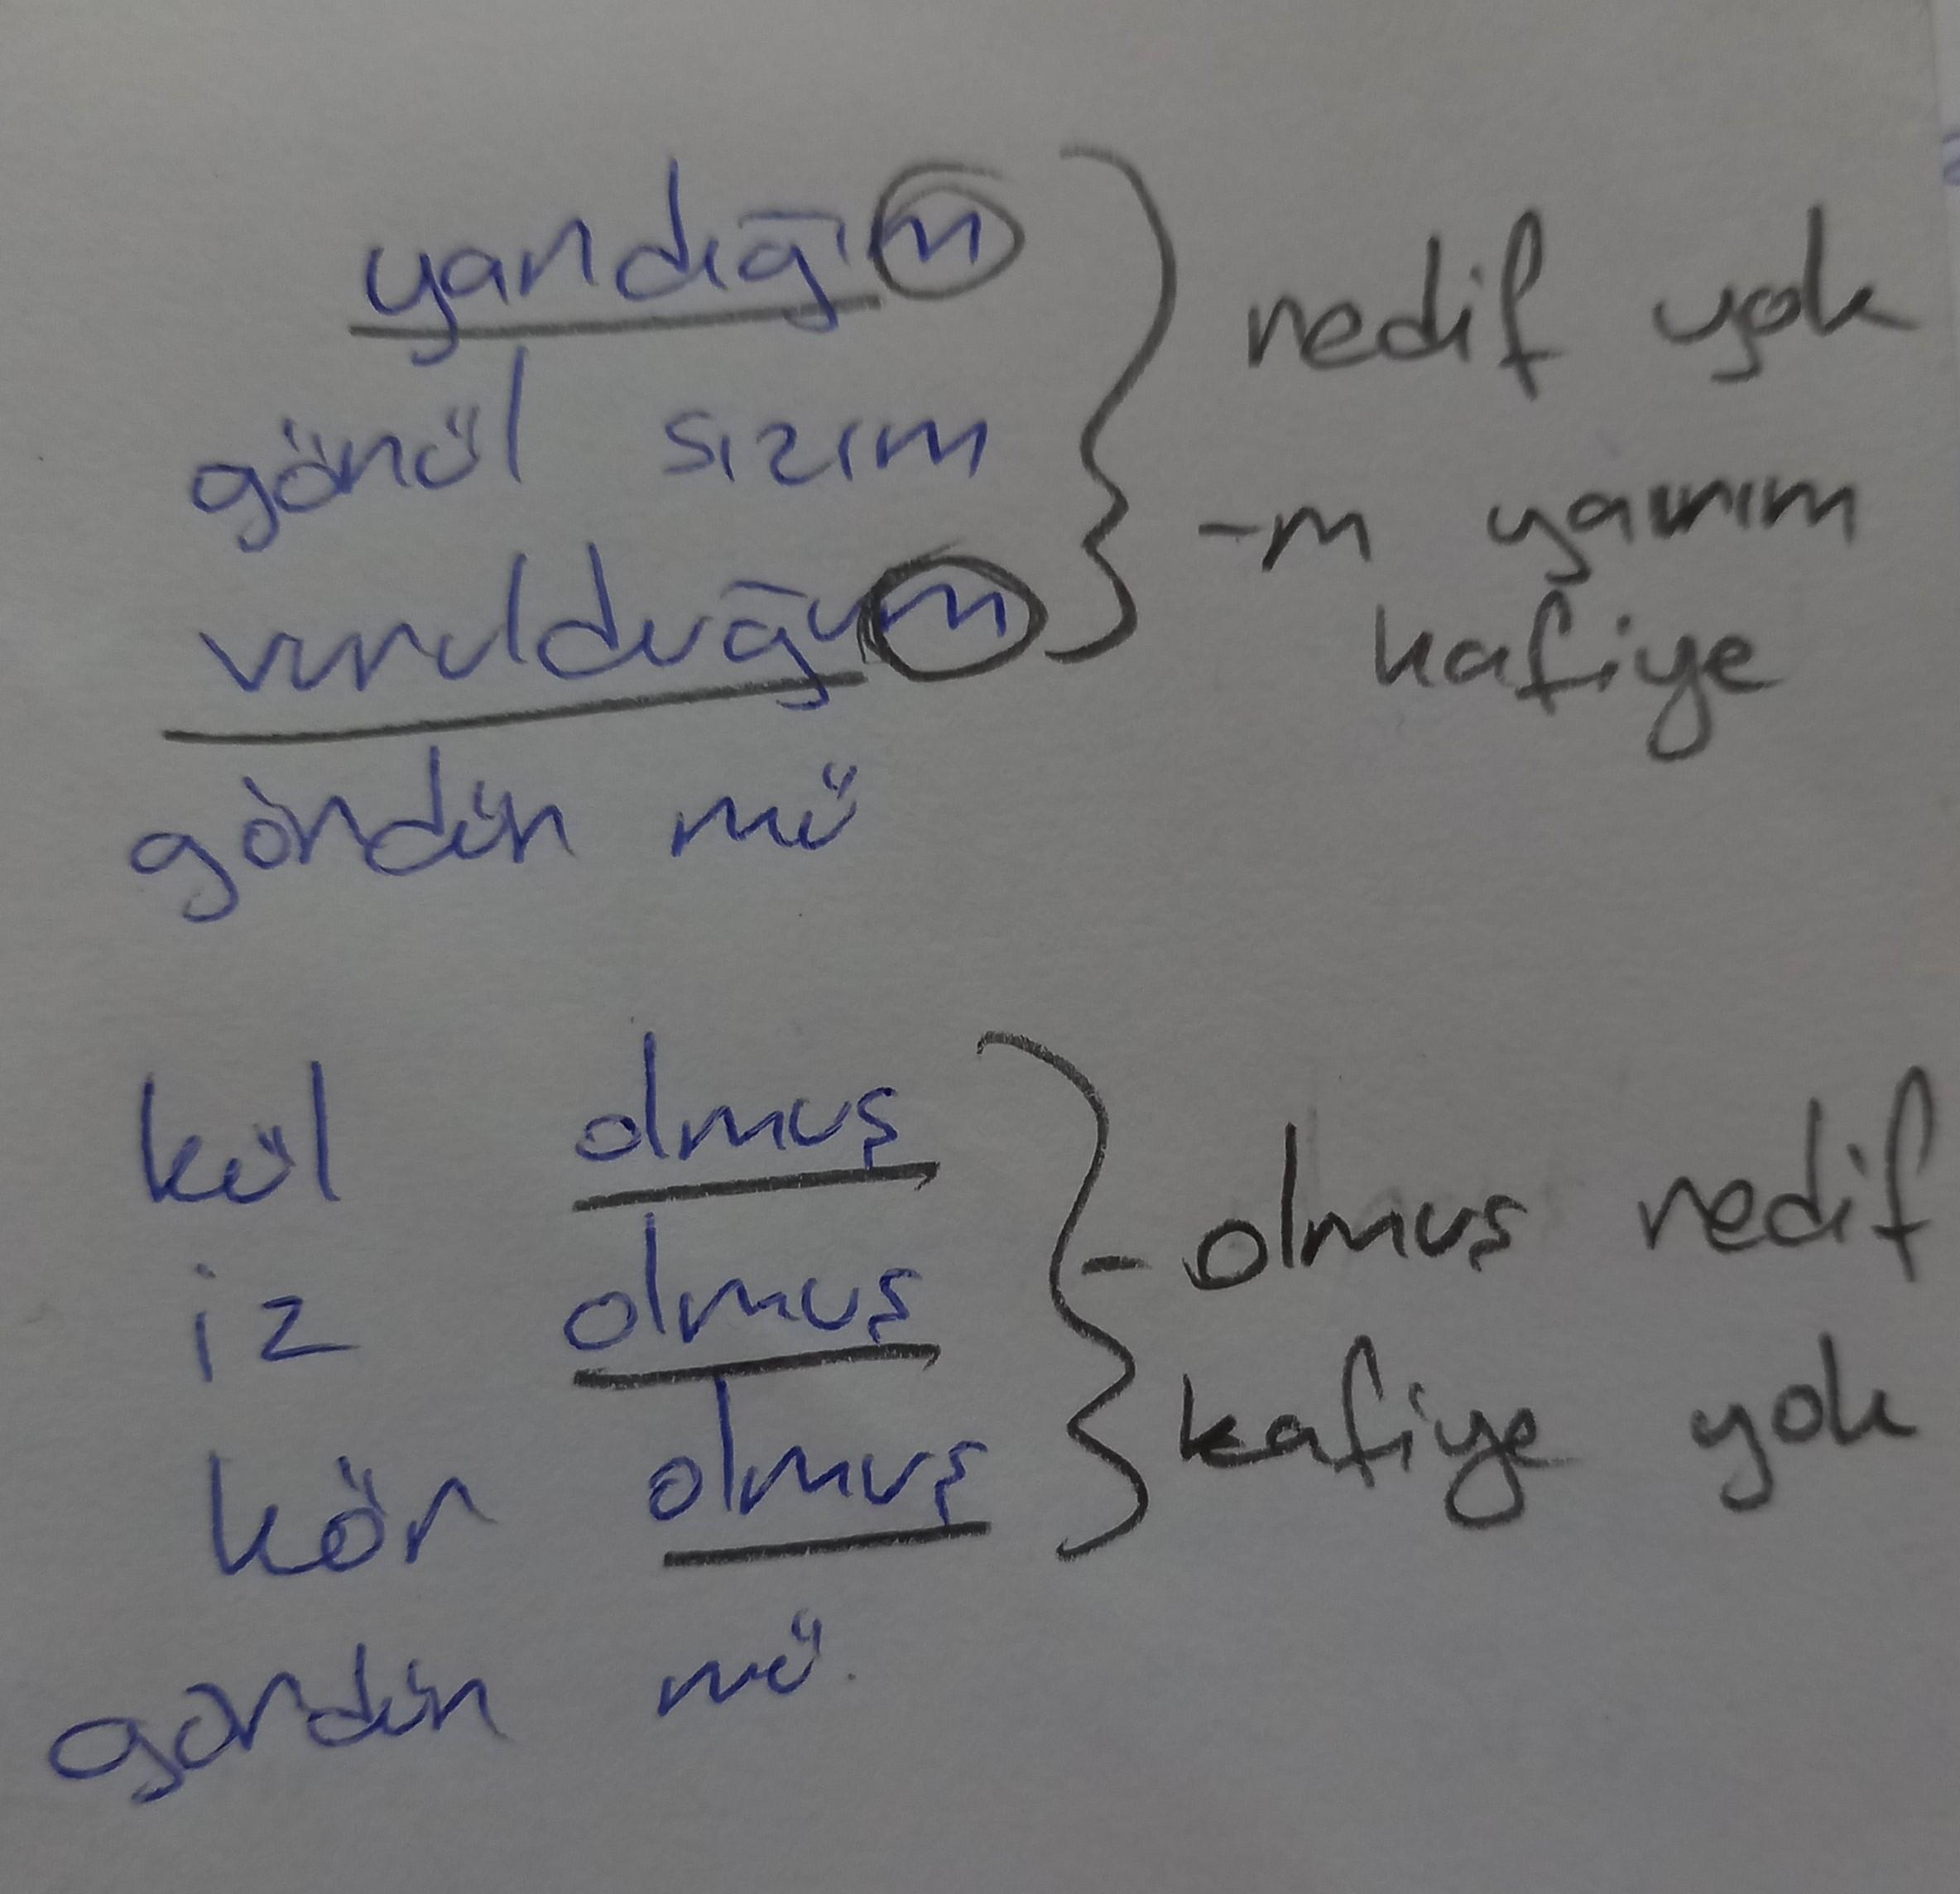 yandığım
gönül sızım
vurulduğum
gördün mü
redif yok
-m yarım
kafiye
kül olmuş
iz olmuş
kör olmuş
gördün mü.
- olmuş redif
kafiye yok